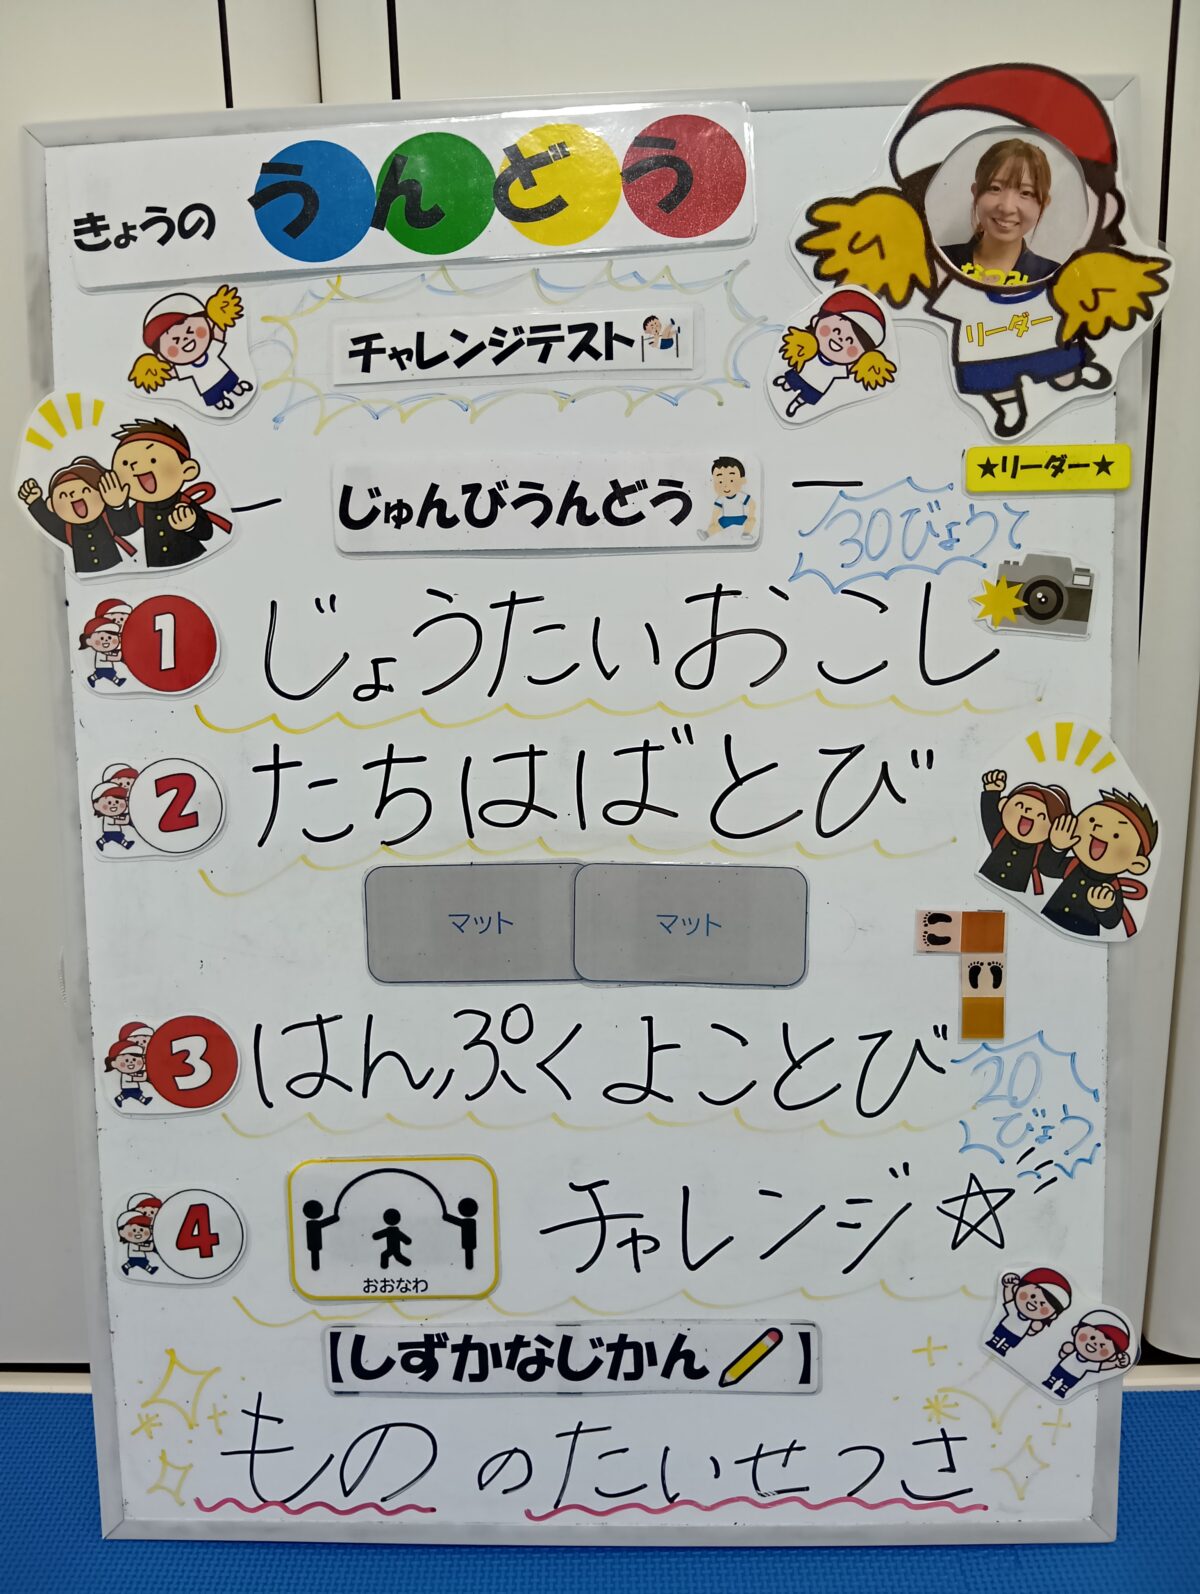 きょうの うんどう
チャレンジテスト
なつみ
リーダー
★リーダー★
じゅんびうんどう
30びょうで
1 じょうたいおこし
2 たちはばとび
マット マット
3 はんぷくよことび
20
びょう
4 おおなわ チャレンジ☆
【しずかなじかん】
もののたいせつさ